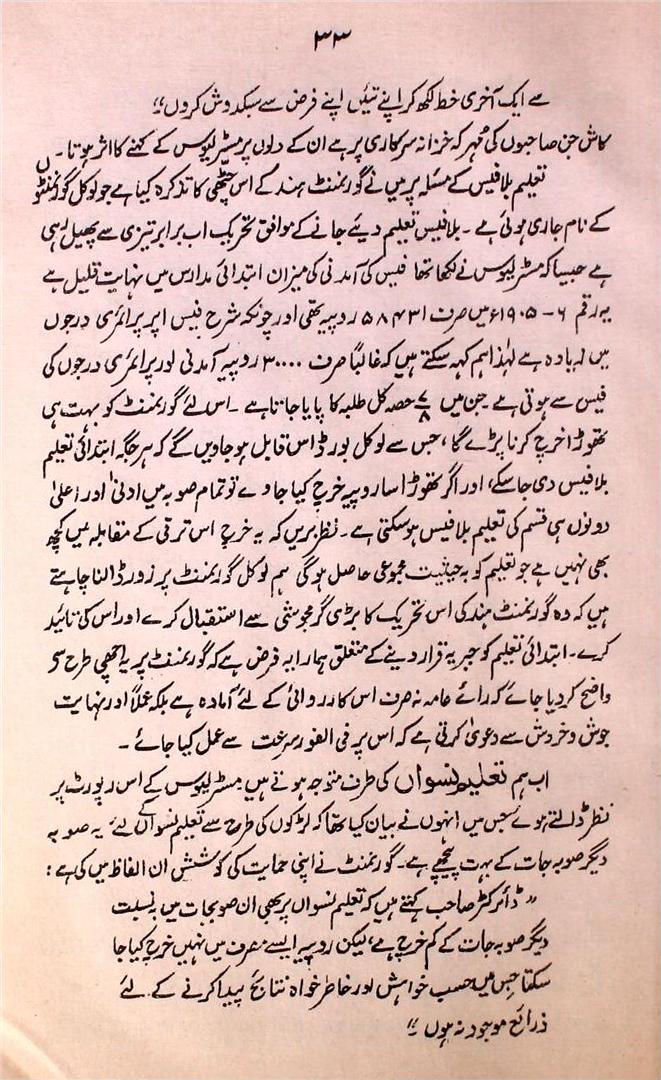 ۳۳
سے ایک آخری خط لکھ کر اپنے تئیں اپنے فرض سے سبکدوش کروں"
کاش جن صاحبوں کی مُہر کہ خزانہ سرکاری پر ہے ان کے دلوں پر مسٹر لیوس کے کہنے کا اثر ہوتا ۔
تعلیم بلافیس کے مسئلہ پر میں نے گورنمنٹ ہند کے اس چٹھی کا تذکرہ کیا ہے جو لوکل گورنمنٹوں
کے نام جاری ہوئی ہے ۔ بلا فیس تعلیم دیئے جانے کے موافق تحریک اب برابر تیزی سے پھیل رہی
ہے جیسا کہ مسٹر لیوس نے لکھا تھا فیس کی آمدنی کی میزان ابتدائی مدارس میں نہایت قلیل ہے
یہ رقم ۶-۱۹۰۵ء میں صرف ۵۸۴۳۱ روپیہ تھی اور چونکہ شرح فیس اپر پرائمری درجوں
میں زیادہ ہے لہٰذا ہم کہہ سکتے ہیں کہ غالباً صرف ۳۰۰۰۰ روپیہ آمدنی لور پرائمری درجوں کی
فیس سے ہوتی ہے جن میں ۷/۸ حصہ کل طلبہ کا پایا جاتا ہے ۔ اس لئے گورنمنٹ کو بہت ہی
تھوڑا خرچ کرنا پڑے گا، جس سے لوکل بورڈ اس قابل ہو جاویں گے کہ ہر جگہ ابتدائی تعلیم
بلافیس دی جا سکے، اور اگر تھوڑا سا روپیہ خرچ کیا جاوے تو تمام صوبہ میں ادنیٰ اور اعلیٰ
دونوں ہی قسم کی تعلیم بلافیس ہو سکتی ہے ۔ نظر بریں کہ یہ خرچ اس ترقی کے مقابلہ میں کچھ
بھی نہیں ہے جو تعلیم کو بہ حیثیت مجموعی حاصل ہوگی ہم لوکل گورنمنٹ پر زور ڈالنا چاہتے
ہیں کہ وہ گورنمنٹ ہند کی اس تحریک کا بڑی گرمجوشی سے استقبال کرے اور اس کی تائید
کرے ۔ ابتدائی تعلیم کو جبریہ قرار دینے کے متعلق ہمارا یہ فرض ہے کہ گورنمنٹ پر یہ اچھی طرح سے
واضح کر دیا جائے کہ رائے عامہ نہ صرف اس کارروائی کے لئے آمادہ ہے بلکہ عملاً اور نہایت
جوش و خروش سے دعویٰ کرتی ہے کہ اس پر فی الفور سرعت سے عمل کیا جائے ۔
اب ہم تعلیم نسواں کی طرف متوجہ ہوتے ہیں مسٹر لیوس کے اس رپورٹ پر
نظر ڈالتے ہوئے جس میں انہوں نے بیان کیا تھا کہ لڑکوں کی طرح سے تعلیم نسواں کے لئے یہ صوبہ
دیگر صوبہ جات کے بہت پیچھے ہے ۔ گورنمنٹ نے اپنی حمایت کی کوشش ان الفاظ میں کی ہے :
"ڈائرکٹر صاحب کہتے ہیں کہ تعلیم نسواں پر بھی ان صوبجات میں بہ نسبت
دیگر صوبہ جات کے کم خرچ ہے، لیکن روپیہ ایسے مصرف میں نہیں خرچ کیا جا
سکتا جس میں حسب خواہش اور خاطر خواہ نتائج پیدا کرنے کے لئے
ذرائع موجود نہ ہوں ۔"